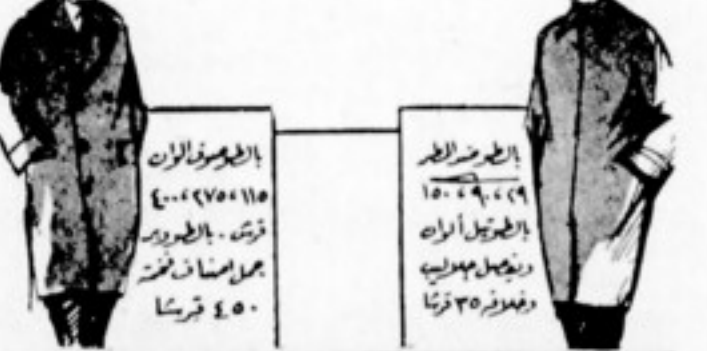 بالطو ضد المطر
٢٩، ٩٠، ١٥٠
بالطو تيل ألوان
وتفصيل جلاليب
وخلافه ٣٥ قرشا
بالطو صوف الوان
١١٥، ٢٧٥، ٤٠٠
قرش. بالطو وبر
جمل اصناف فخمة
٤٥٠ قرشا